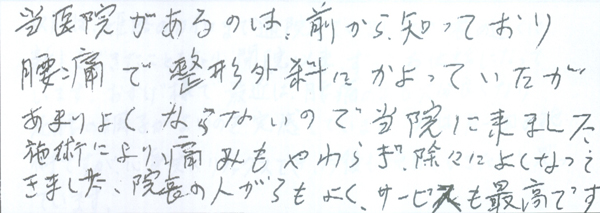 当医院があるのは、前から知っており
腰痛で整形外科にかよっていたが
あまりよくならないので当院に来ました
施術により、痛みもやわらぎ、除々によくなって
きました、院長の人がらもよく、サービスも最高です